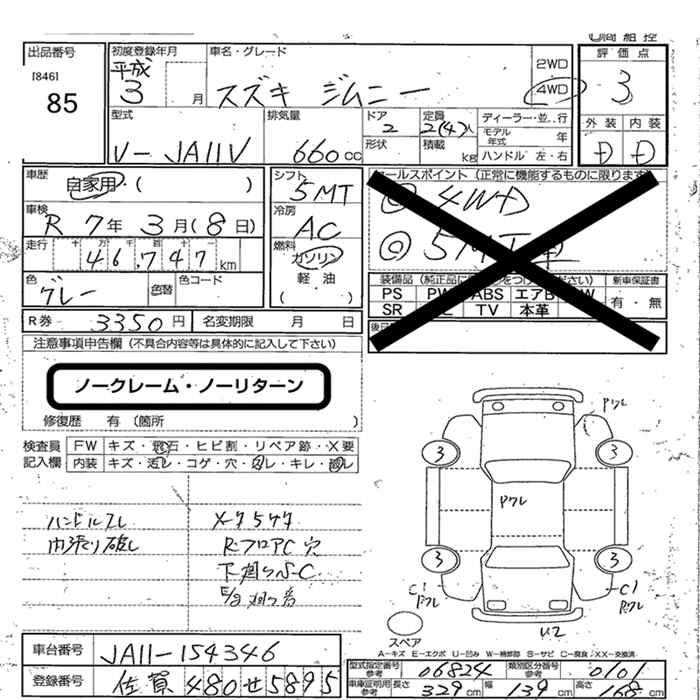 出品番号
[846]
85
初度登録年月
平成
3 月
車名・グレード
スズキ ジムニー
2WD
4WD
評価点
3
外装 内装
D D
型式
V-JA11V
排気量
660cc
ドア
2
定員
2(4)人
形状
積載
kg
ディーラー・並・行
モデル年式 年
ハンドル 左・右
車歴
自家用・( )
車検
R 7年 3月(8日)
走行
十万千百十一
46,747km
色
グレー
色替
色コード
シフト
5MT
冷房
AC
燃料
ガソリン
軽・油
( )
セールスポイント(正常に機能するものに限ります)
◎ 4WD
◎ 5MT車
PS PW ABS エアB
SR TV 本革
新車保証書
有・無
R券 3350円
名変期限 月 日
注意事項申告欄(不具合内容等は具体的に記入して下さい)
ノークレーム・ノーリターン
修復歴 有(箇所 )
検査員記入欄
FW キズ・飛石・ヒビ割・リペア跡・X要
内装 キズ・汚レ・コゲ・穴・スレ・キレ・破レ
ハンドルスレ
内張り破レ
R-フロアC 穴
下廻りS-C
車台番号 JA11-154346
登録番号 佐賀 480 せ 5895
Pワレ
3
3
Pワレ
3
3
C1
Pワレ
C1
Pワレ
U2
スペア
A-キズ E-エクボ U-凹み W-補修跡 S-サビ C-腐食 XX-交換済
型式指定番号
参考
06824
類別区分番号
参考
0101
車庫証明用
参考
長さ 329cm 幅 139cm 高さ 168cm